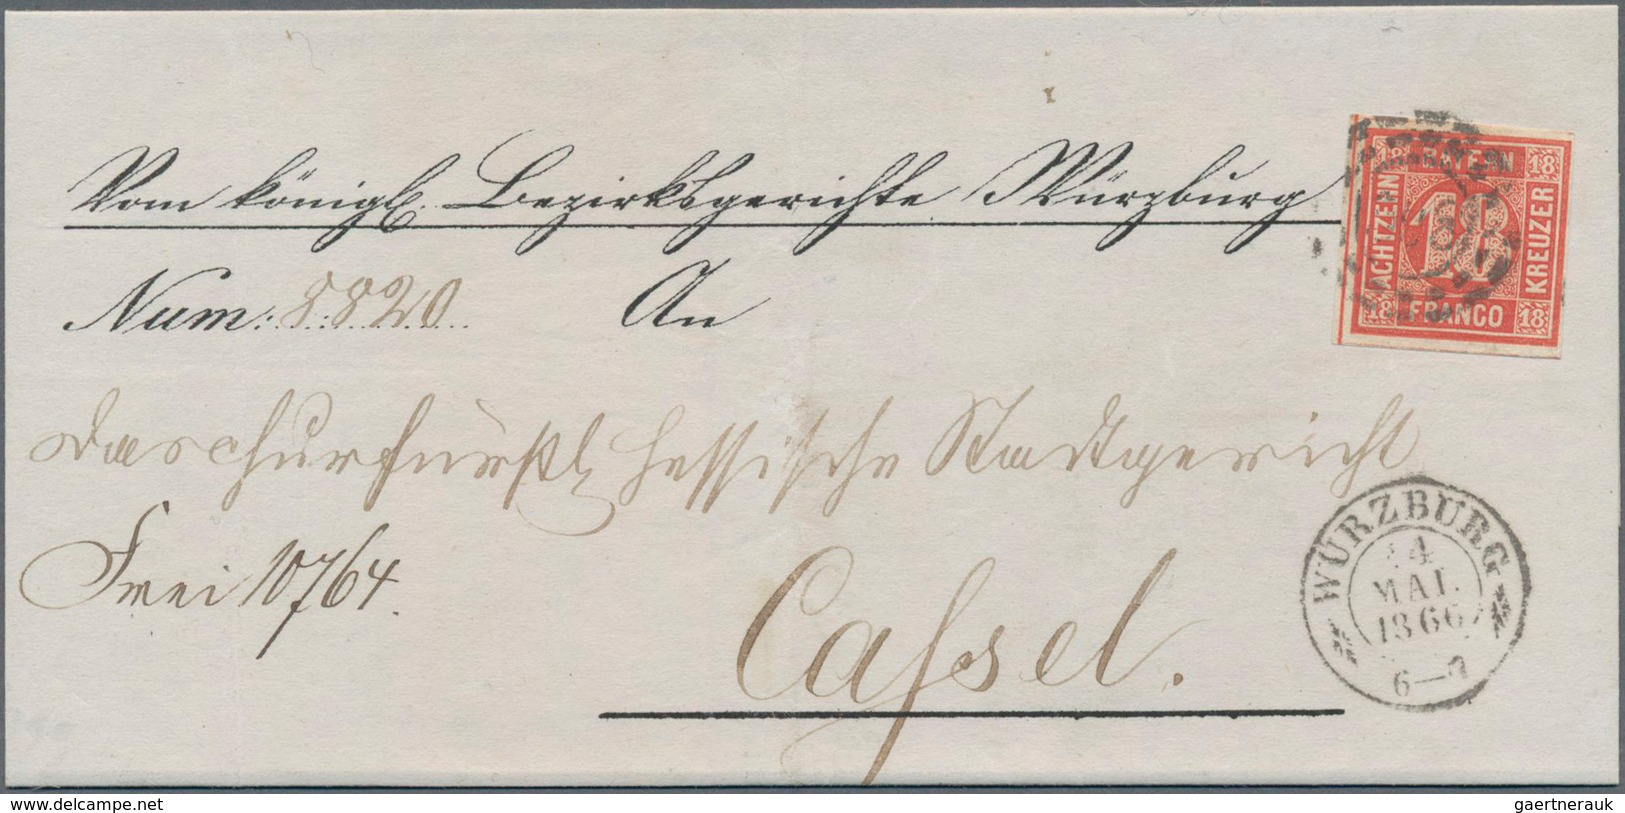 Vom königl. Bezirksgerichte Würzburg
18 BAYERN 18
ACHTZEHN 18 KREUZER
18 FRANCO 18
Num: 8820 An
das churfürstl hessische Stadtgericht
Frei 10764.
Cassel.
WÜRZBURG
4
MAI.
1866
6—7
www.delcampe.net
gaertnerauk